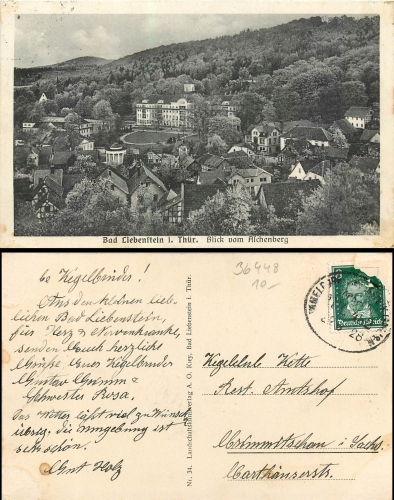 Bad Liebenstein i. Thür. Blick vom Aschenberg
Kegelbrüder!
Aus dem kleinen lieb-
lichen Bad Liebenstein,
für Herz u. Nervenkranke,
senden Euch herzlichst
Grüße Euer Kegelbruder
Gustav Grimm u
Schwester Rosa.
Das Wetter läßt viel zu Wünsch
übrig, die Umgebung ist
sehr schön.
Gut Holz
Nr. 34. Landschaftsbildverlag A. O. Krey, Bad Liebenstein i. Thür.
36448
10.-
Deutsches Reich
Kegelklub Kette
Rest. Amtshof
Crimmitschau i. Sachs.
Carthäuserstr.